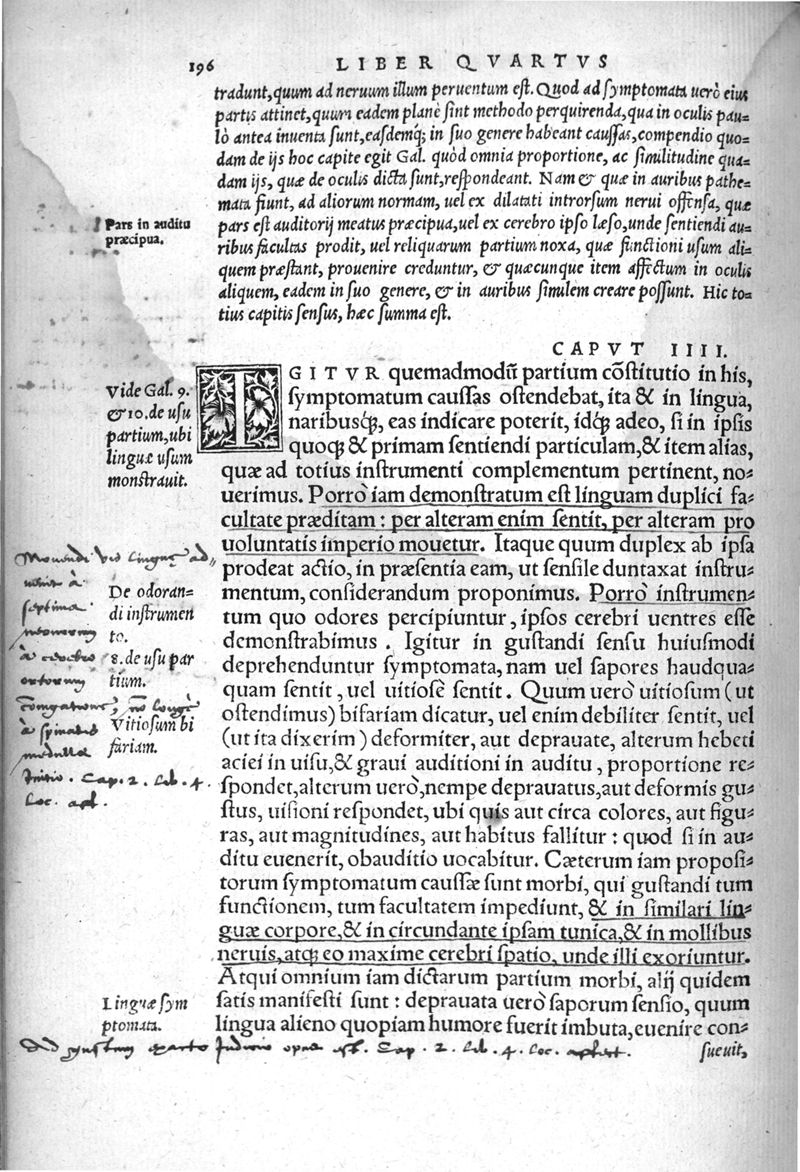 196
LIBER QVARTVS
tradunt, quum ad neruum illum peruentum est. Quod ad symptomata uerò eius
partis attinet, quum eadem planè sint methodo perquirenda, qua in oculis pau-
lò antea inuenta sunt, easdemq́; in suo genere habeant caussas, compendio quo-
dam de ijs hoc capite egit Gal. quòd omnia proportione, ac similitudine qua-
dam ijs, quæ de oculis dicta sunt, respondeant. Nam & quæ in auribus pathe-
mata fiunt, ad aliorum normam, uel ex dilatati introrsum nerui offensa, quæ
pars est auditorij meatus præcipua, uel ex cerebro ipso læso, unde sentiendi au-
ribus facultas prodit, uel reliquarum partium noxa, quæ functioni usum ali-
quem præstant, prouenire creduntur, & quæcunque item affectum in oculis
aliquem, eadem in suo genere, & in auribus similem creare possunt. Hic to-
tius capitis sensus, hæc summa est.
Pars in auditu
præcipua.
CAPVT IIII.
IGITVR quemadmodũ partium cõstitutio in his,
symptomatum caussas ostendebat, ita & in lingua,
naribusq́;, eas indicare poterit, idq́; adeo, si in ipsis
quoq; & primam sentiendi particulam, & item alias,
quæ ad totius instrumenti complementum pertinent, no-
uerimus. Porrò iam demonstratum est linguam duplici fa-
cultate præditam: per alteram enim sentit, per alteram pro
uoluntatis imperio mouetur. Itaque quum duplex ab ipsa
prodeat actio, in præsentia eam, ut sensile duntaxat instru-
mentum, considerandum proponimus. Porrò instrumen-
tum quo odores percipiuntur, ipsos cerebri uentres esse
demonstrabimus. Igitur in gustandi sensu huiusmodi
deprehenduntur symptomata, nam uel sapores haudqua-
quam sentit, uel uitiosè sentit. Quum uerò uitiosum (ut
ostendimus) bifariam dicatur, uel enim debiliter sentit, uel
(ut ita dixerim) deformiter, aut deprauate, alterum hebeti
aciei in uisu, & graui auditioni in auditu, proportione re-
spondet, alterum uerò, nempe deprauatus, aut deformis gu-
stus, uisioni respondet, ubi quis aut circa colores, aut figu-
ras, aut magnitudines, aut habitus fallitur: quod si in au-
ditu euenerit, obauditio uocabitur. Cæterum iam proposi-
torum symptomatum caussæ sunt morbi, qui gustandi tum
functionem, tum facultatem impediunt, & in similari lin-
guæ corpore, & in circundante ipsam tunica, & in mollibus
neruis, atq; eo maxime cerebri spatio, unde illi exoriuntur.
Atqui omnium iam dictarum partium morbi, alij quidem
satis manifesti sunt: deprauata uerò saporum sensio, quum
lingua alieno quopiam humore fuerit imbuta, euenire con-
sueuit,
Vide Gal. 9.
& 10. de usu
partium, ubi
linguæ usum
monstrauit.
Mouendi vis linguę ad-
uenit à
septima
neruorum
à cerebro
ortorum
à spinalis
medullæ
Initio. Cap. 2. Lib. 4.
Loc. aff.
De odoran-
di instrumen
to.
8. de usu par
tium.
Vitiosum bi
fariam.
Linguæ sym
ptomata.
Ad gustum Cap. 2. Lib. 4. Loc. affect.